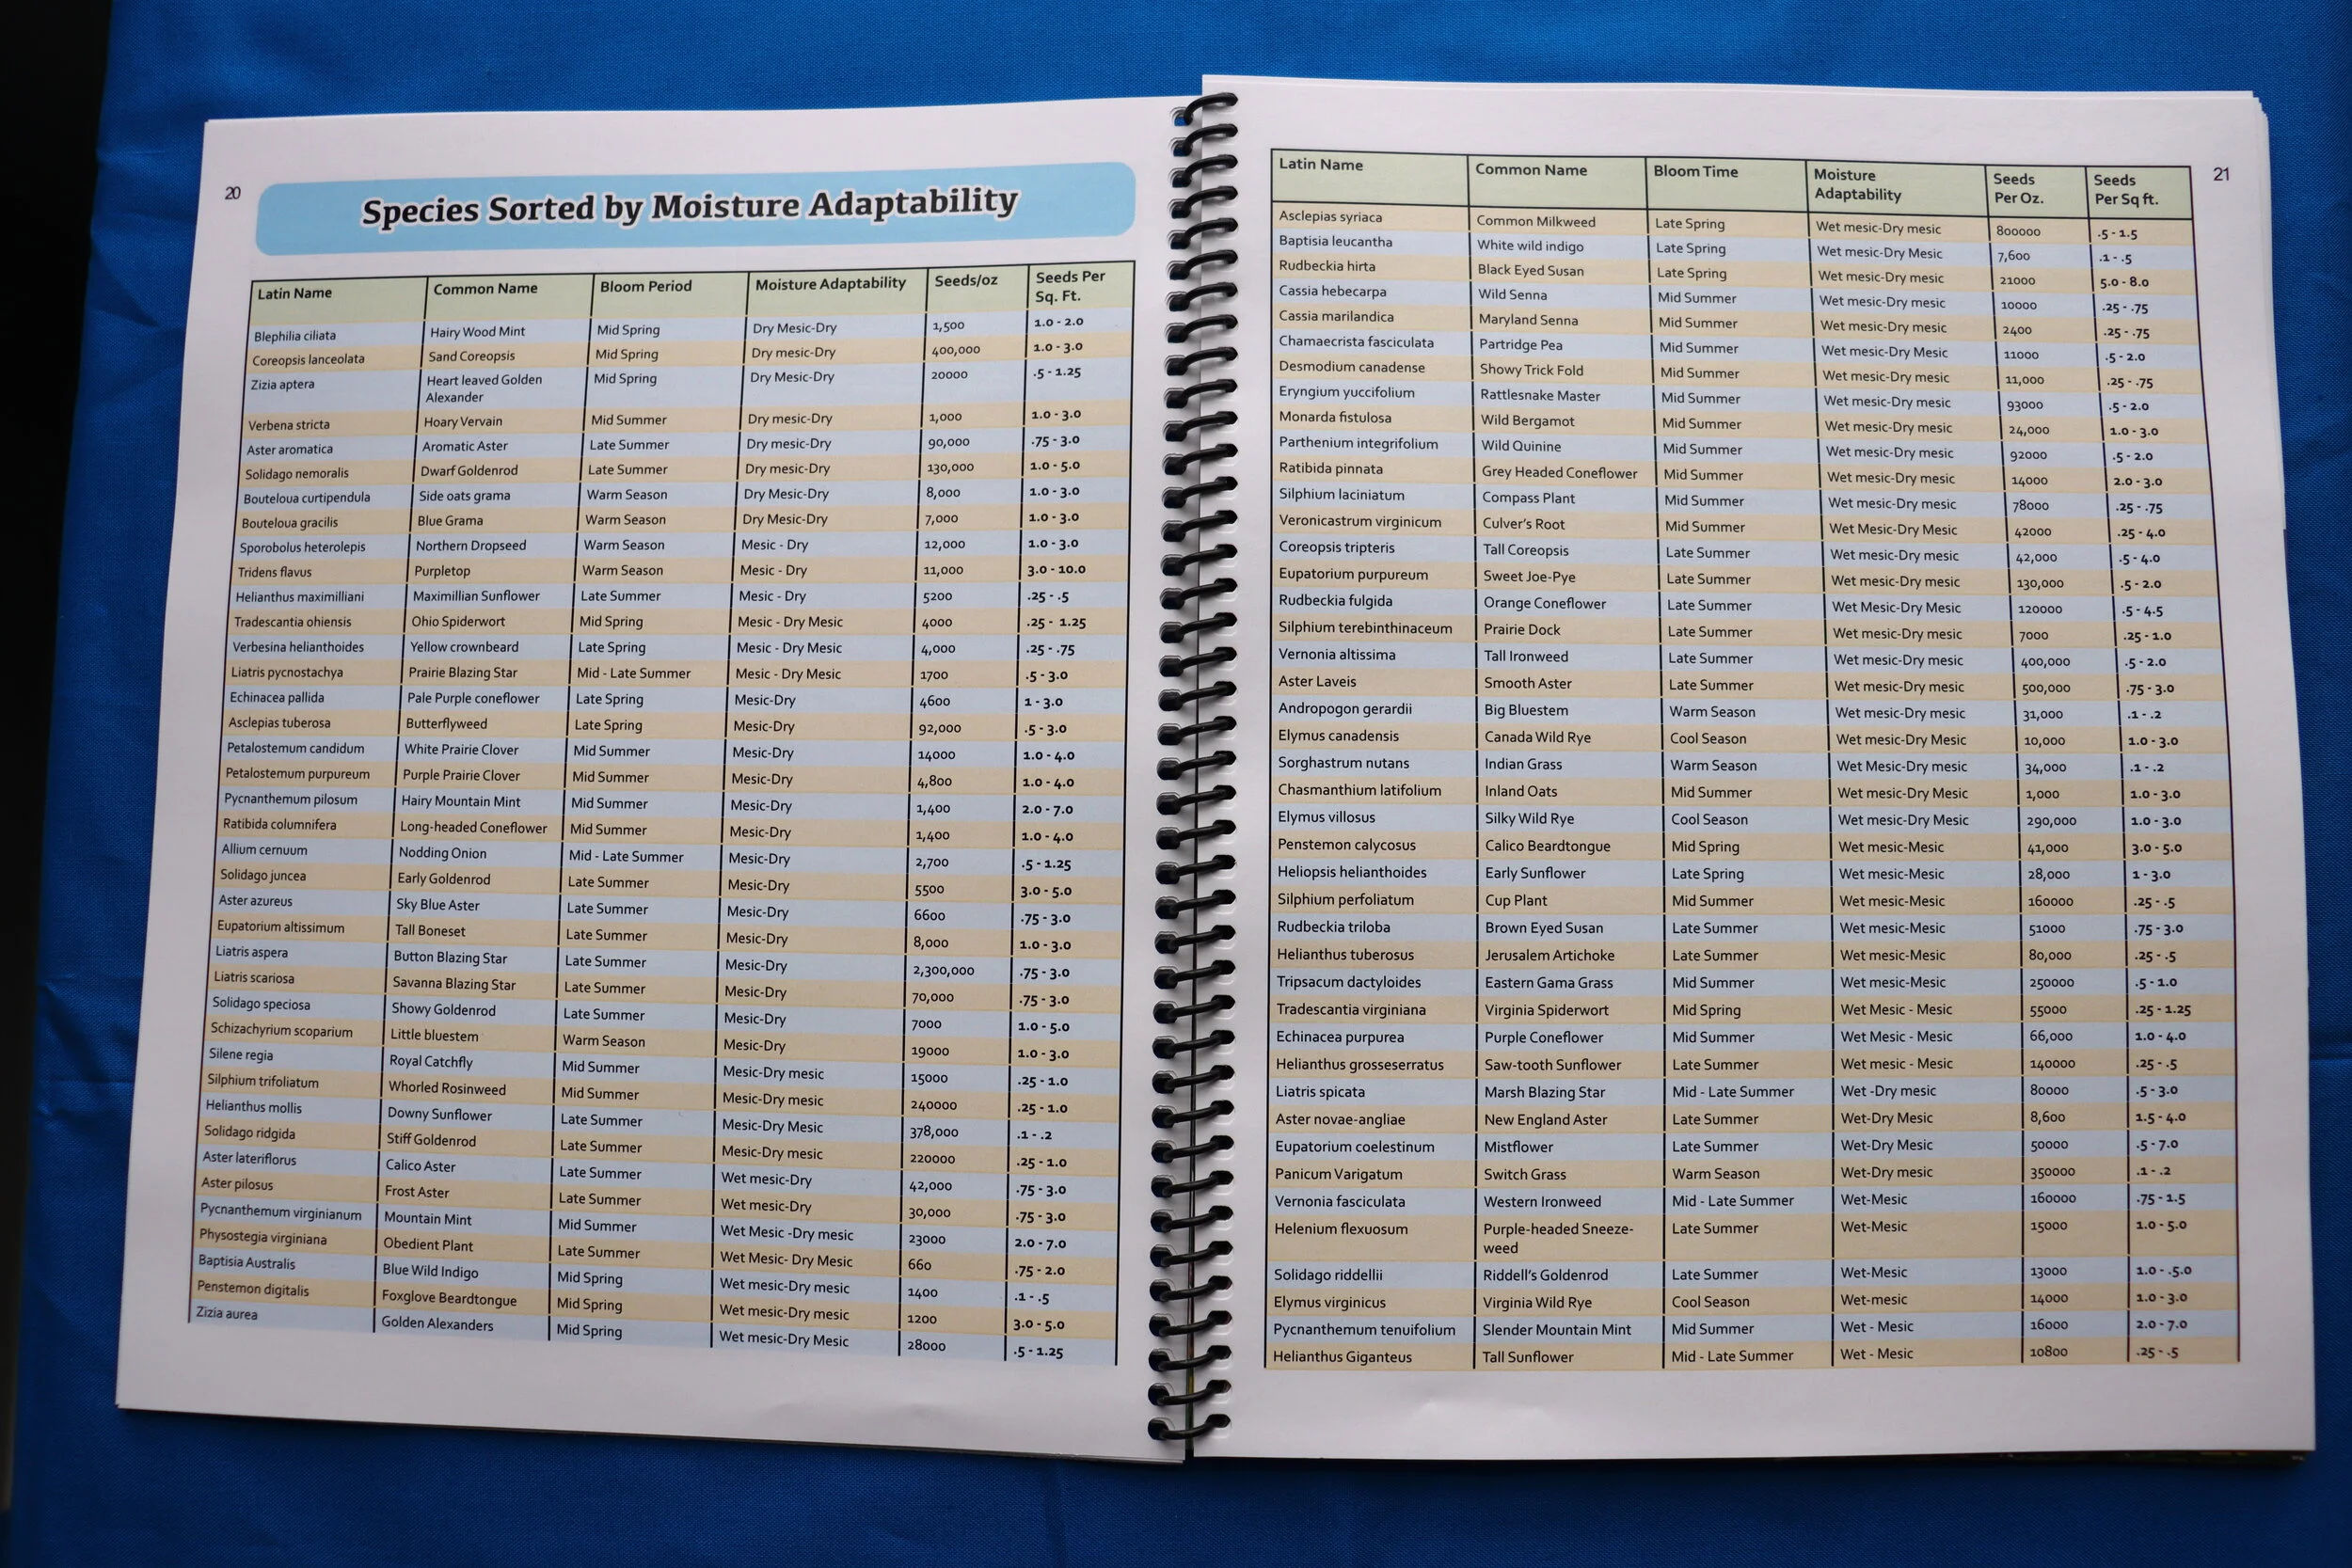 20
Species Sorted by Moisture Adaptability
Latin Name Common Name Bloom Period Moisture Adaptability Seeds/oz Seeds Per Sq. Ft.
Blephilia ciliata Hairy Wood Mint Mid Spring Dry Mesic-Dry 1,500 1.0 - 2.0
Coreopsis lanceolata Sand Coreopsis Mid Spring Dry mesic-Dry 400,000 1.0 - 3.0
Zizia aptera Heart leaved Golden Alexander Mid Spring Dry Mesic-Dry 20000 .5 - 1.25
Verbena stricta Hoary Vervain Mid Summer Dry mesic-Dry 1,000 1.0 - 3.0
Aster aromatica Aromatic Aster Late Summer Dry mesic-Dry 90,000 .75 - 3.0
Solidago nemoralis Dwarf Goldenrod Late Summer Dry mesic-Dry 130,000 1.0 - 5.0
Bouteloua curtipendula Side oats grama Warm Season Dry Mesic-Dry 8,000 1.0 - 3.0
Bouteloua gracilis Blue Grama Warm Season Dry Mesic-Dry 7,000 1.0 - 3.0
Sporobolus heterolepis Northern Dropseed Warm Season Mesic - Dry 12,000 1.0 - 3.0
Tridens flavus Purpletop Warm Season Mesic - Dry 11,000 3.0 - 10.0
Helianthus maximilliani Maximillian Sunflower Late Summer Mesic - Dry 5200 .25 - .5
Tradescantia ohiensis Ohio Spiderwort Mid Spring Mesic - Dry Mesic 4000 .25 - 1.25
Verbesina helianthoides Yellow crownbeard Late Spring Mesic - Dry Mesic 4,000 .25 - .75
Liatris pycnostachya Prairie Blazing Star Mid - Late Summer Mesic - Dry Mesic 1700 .5 - 3.0
Echinacea pallida Pale Purple coneflower Late Spring Mesic-Dry 4600 1 - 3.0
Asclepias tuberosa Butterflyweed Late Spring Mesic-Dry 92,000 .5 - 3.0
Petalostemum candidum White Prairie Clover Mid Summer Mesic-Dry 14000 1.0 - 4.0
Petalostemum purpureum Purple Prairie Clover Mid Summer Mesic-Dry 4,800 1.0 - 4.0
Pycnanthemum pilosum Hairy Mountain Mint Mid Summer Mesic-Dry 1,400 2.0 - 7.0
Ratibida columnifera Long-headed Coneflower Mid Summer Mesic-Dry 1,400 1.0 - 4.0
Allium cernuum Nodding Onion Mid - Late Summer Mesic-Dry 2,700 .5 - 1.25
Solidago juncea Early Goldenrod Late Summer Mesic-Dry 5500 3.0 - 5.0
Aster azureus Sky Blue Aster Late Summer Mesic-Dry 6600 .75 - 3.0
Eupatorium altissimum Tall Boneset Late Summer Mesic-Dry 8,000 1.0 - 3.0
Liatris aspera Button Blazing Star Late Summer Mesic-Dry 2,300,000 .75 - 3.0
Liatris scariosa Savanna Blazing Star Late Summer Mesic-Dry 70,000 .75 - 3.0
Solidago speciosa Showy Goldenrod Late Summer Mesic-Dry 7000 1.0 - 5.0
Schizachyrium scoparium Little bluestem Warm Season Mesic-Dry 19000 1.0 - 3.0
Silene regia Royal Catchfly Mid Summer Mesic-Dry mesic 15000 .25 - 1.0
Silphium trifoliatum Whorled Rosinweed Mid Summer Mesic-Dry mesic 240000 .25 - 1.0
Helianthus mollis Downy Sunflower Late Summer Mesic-Dry Mesic 378,000 .1 - .2
Solidago ridgida Stiff Goldenrod Late Summer Mesic-Dry mesic 220000 .25 - 1.0
Aster lateriflorus Calico Aster Late Summer Wet mesic-Dry 42,000 .75 - 3.0
Aster pilosus Frost Aster Late Summer Wet mesic-Dry 30,000 .75 - 3.0
Pycnanthemum virginianum Mountain Mint Mid Summer Wet Mesic -Dry mesic 23000 2.0 - 7.0
Physostegia virginiana Obedient Plant Late Summer Wet Mesic- Dry Mesic 660 .75 - 2.0
Baptisia Australis Blue Wild Indigo Mid Spring Wet mesic-Dry mesic 1400 .1 - .5
Penstemon digitalis Foxglove Beardtongue Mid Spring Wet mesic-Dry mesic 1200 3.0 - 5.0
Zizia aurea Golden Alexanders Mid Spring Wet mesic-Dry Mesic 28000 .5 - 1.25
21
Latin Name Common Name Bloom Time Moisture Adaptability Seeds Per Oz. Seeds Per Sq ft.
Asclepias syriaca Common Milkweed Late Spring Wet mesic-Dry mesic 800000 .5 - 1.5
Baptisia leucantha White wild indigo Late Spring Wet mesic-Dry Mesic 7,600 .1 - .5
Rudbeckia hirta Black Eyed Susan Late Spring Wet mesic-Dry mesic 21000 5.0 - 8.0
Cassia hebecarpa Wild Senna Mid Summer Wet mesic-Dry mesic 10000 .25 - .75
Cassia marilandica Maryland Senna Mid Summer Wet mesic-Dry mesic 2400 .25 - .75
Chamaecrista fasciculata Partridge Pea Mid Summer Wet mesic-Dry Mesic 11000 .5 - 2.0
Desmodium canadense Showy Trick Fold Mid Summer Wet mesic-Dry mesic 11,000 .25 - .75
Eryngium yuccifolium Rattlesnake Master Mid Summer Wet mesic-Dry mesic 93000 .5 - 2.0
Monarda fistulosa Wild Bergamot Mid Summer Wet mesic-Dry mesic 24,000 1.0 - 3.0
Parthenium integrifolium Wild Quinine Mid Summer Wet mesic-Dry mesic 92000 .5 - 2.0
Ratibida pinnata Grey Headed Coneflower Mid Summer Wet mesic-Dry mesic 14000 2.0 - 3.0
Silphium laciniatum Compass Plant Mid Summer Wet mesic-Dry mesic 78000 .25 - .75
Veronicastrum virginicum Culver's Root Mid Summer Wet Mesic-Dry Mesic 42000 .25 - 4.0
Coreopsis tripteris Tall Coreopsis Late Summer Wet mesic-Dry mesic 42,000 .5 - 4.0
Eupatorium purpureum Sweet Joe-Pye Late Summer Wet mesic-Dry mesic 130,000 .5 - 2.0
Rudbeckia fulgida Orange Coneflower Late Summer Wet Mesic-Dry Mesic 120000 .5 - 4.5
Silphium terebinthinaceum Prairie Dock Late Summer Wet mesic-Dry mesic 7000 .25 - 1.0
Vernonia altissima Tall Ironweed Late Summer Wet mesic-Dry mesic 400,000 .5 - 2.0
Aster Laveis Smooth Aster Late Summer Wet mesic-Dry mesic 500,000 .75 - 3.0
Andropogon gerardii Big Bluestem Warm Season Wet mesic-Dry mesic 31,000 .1 - .2
Elymus canadensis Canada Wild Rye Cool Season Wet mesic-Dry Mesic 10,000 1.0 - 3.0
Sorghastrum nutans Indian Grass Warm Season Wet Mesic-Dry mesic 34,000 .1 - .2
Chasmanthium latifolium Inland Oats Mid Summer Wet mesic-Dry Mesic 1,000 1.0 - 3.0
Elymus villosus Silky Wild Rye Cool Season Wet mesic-Dry Mesic 290,000 1.0 - 3.0
Penstemon calycosus Calico Beardtongue Mid Spring Wet mesic-Mesic 41,000 3.0 - 5.0
Heliopsis helianthoides Early Sunflower Late Spring Wet mesic-Mesic 28,000 1 - 3.0
Silphium perfoliatum Cup Plant Mid Summer Wet mesic-Mesic 160000 .25 - .5
Rudbeckia triloba Brown Eyed Susan Late Summer Wet mesic-Mesic 51000 .75 - 3.0
Helianthus tuberosus Jerusalem Artichoke Late Summer Wet mesic-Mesic 80,000 .25 - .5
Tripsacum dactyloides Eastern Gama Grass Mid Summer Wet mesic-Mesic 250000 .5 - 1.0
Tradescantia virginiana Virginia Spiderwort Mid Spring Wet Mesic - Mesic 55000 .25 - 1.25
Echinacea purpurea Purple Coneflower Mid Summer Wet Mesic - Mesic 66,000 1.0 - 4.0
Helianthus grosseserratus Saw-tooth Sunflower Late Summer Wet mesic - Mesic 140000 .25 - .5
Liatris spicata Marsh Blazing Star Mid - Late Summer Wet -Dry mesic 80000 .5 - 3.0
Aster novae-angliae New England Aster Late Summer Wet-Dry Mesic 8,600 1.5 - 4.0
Eupatorium coelestinum Mistflower Late Summer Wet-Dry Mesic 50000 .5 - 7.0
Panicum Varigatum Switch Grass Warm Season Wet-Dry mesic 350000 .1 - .2
Vernonia fasciculata Western Ironweed Mid - Late Summer Wet-Mesic 160000 .75 - 1.5
Helenium flexuosum Purple-headed Sneeze- weed Late Summer Wet-Mesic 15000 1.0 - 5.0
Solidago riddellii Riddell's Goldenrod Late Summer Wet-Mesic 13000 1.0 - .5.0
Elymus virginicus Virginia Wild Rye Cool Season Wet-mesic 14000 1.0 - 3.0
Pycnanthemum tenuifolium Slender Mountain Mint Mid Summer Wet - Mesic 16000 2.0 - 7.0
Helianthus Giganteus Tall Sunflower Mid - Late Summer Wet - Mesic 10800 .25 - .5